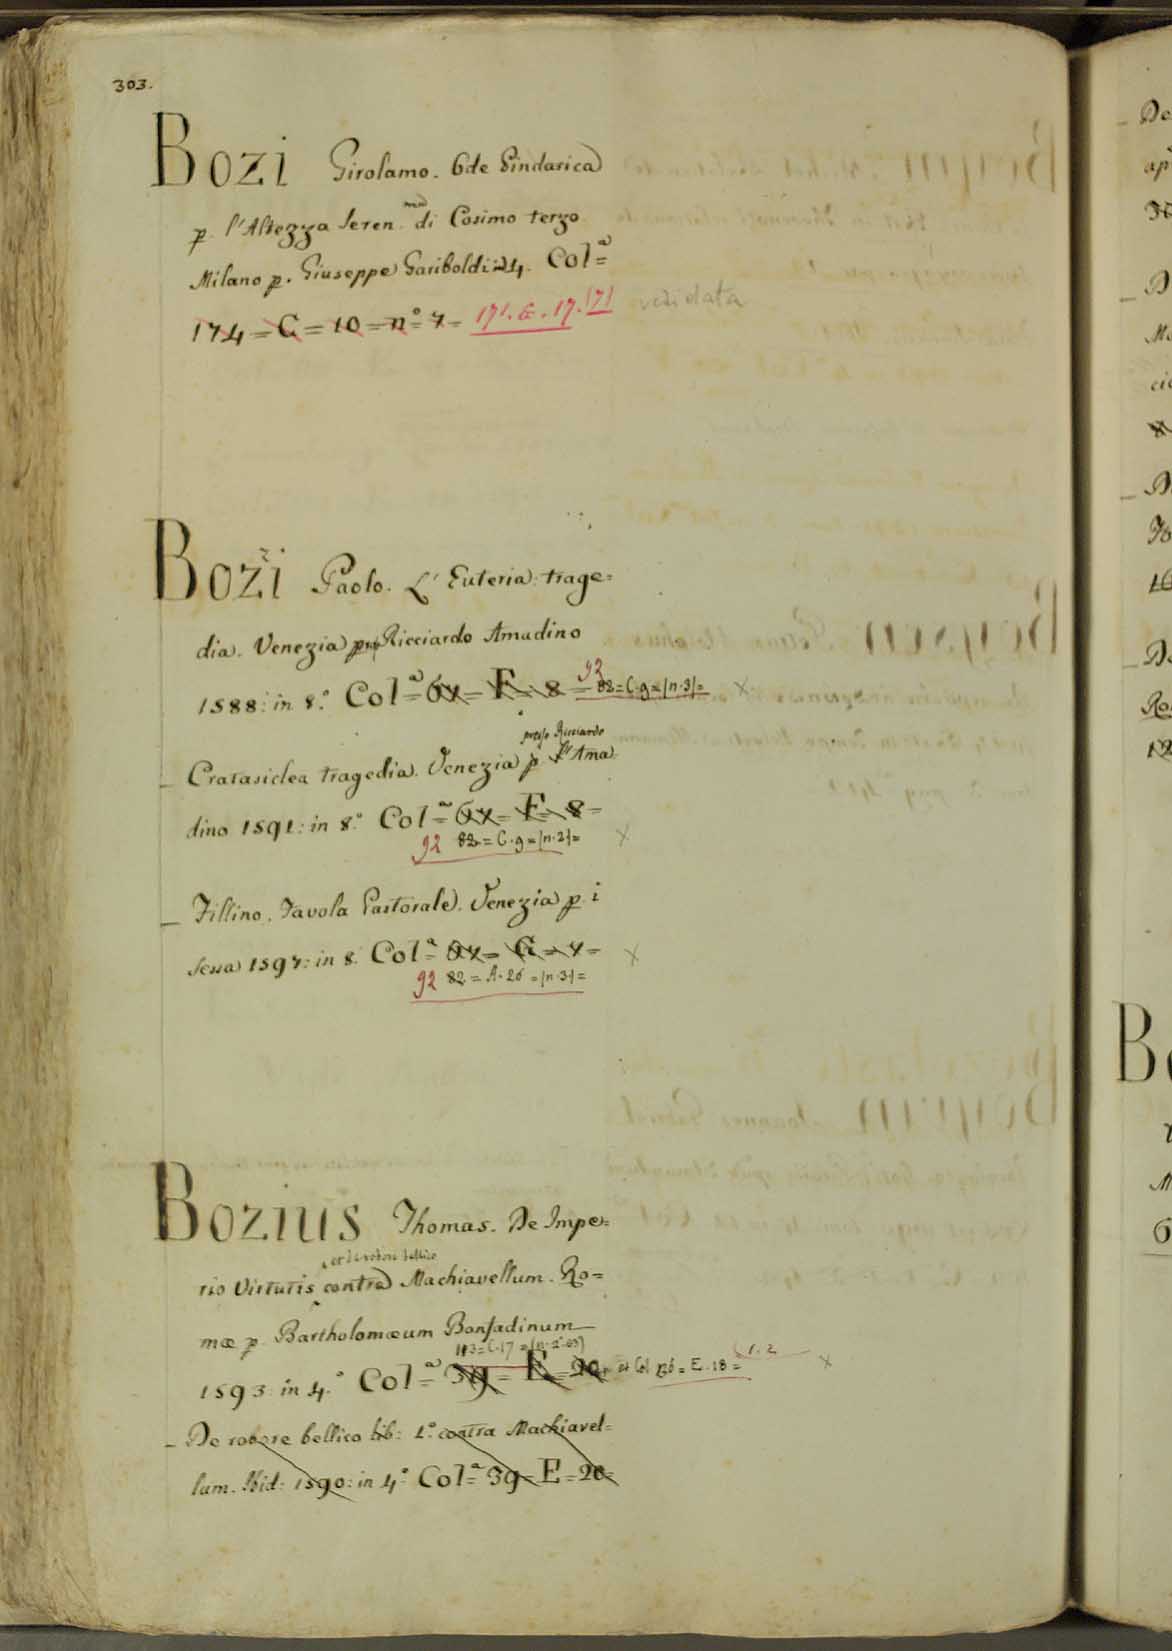 303.
Bozi Girolamo. Ode Pindarica
p. l'Altezza Seren.ma di Cosimo terzo
Milano p. Giuseppe Gariboldi in 4. Col.a=
174 = C = 10 = n.o 7 = 171. E. 17. 171
vedi data
Bozzi Paolo. L'Euteria trage=
dia. Venezia Ricciardo Amadino
1588: in 8.o Col.a= 67 = F = 8 = 92 82 = C. 9 = (n. 3) = x
presso Ricciardo
_ Cratasiclea tragedia. Venezia p. Ama
dino 1591: in 8.o Col.a= 67 = F = 8 =
92 82 = C. 9 = (n. 2) = x
_ Fillino. Favola Pastorale. Venezia p. i
Sessa 1597: in 8. Col.a= 67 = G = 7 = x
92 82 = A. 26 = (n. 3) =
Bozius Thomas. De Impe=
et de robore bellico
rio Virtutis contra Machiavellum. Ro=
mæ p. Bartholomæum Bonfadinum
113 = C. 17 =
1593: in 4.o Col.a= 39 = E = 20 et Col. 136 = E. 18 = 1. 2 x
_ De robore bellico lib: 1.o contra Machiavel=
lum. Ibid: 1590: in 4.o Col.a= 39 = E = 20=
De
B